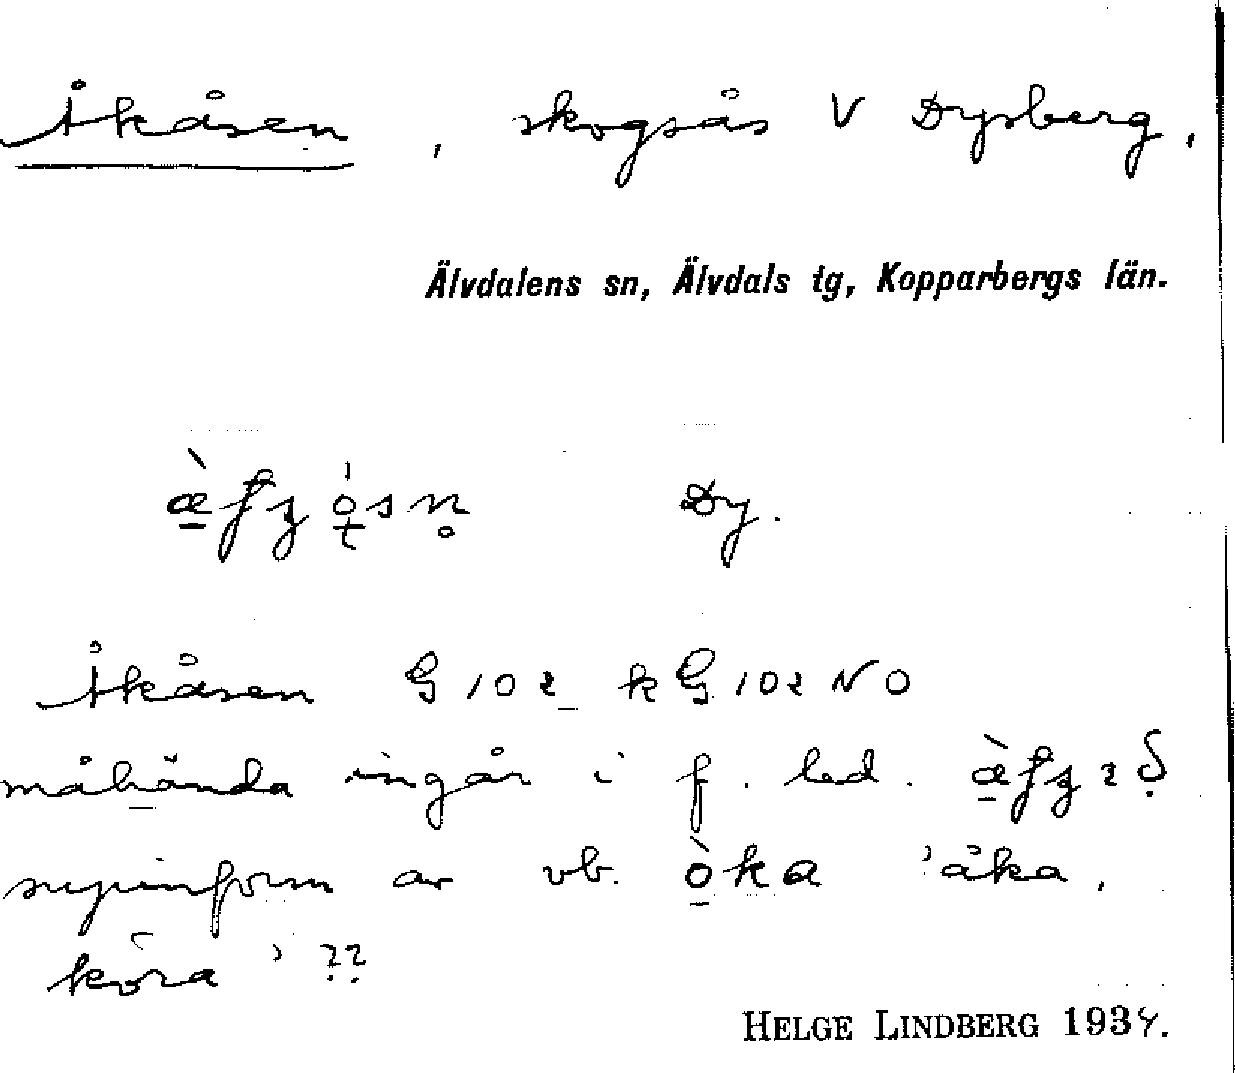 Åkåsen, skogsås V Dysberg,
Älvdalens sn, Älvdals tg, Kopparbergs län.
Dy.
Åkåsen G 102 k G 102 NO
måhända ingår i f. led.
supinform av vb. òka 'åka,
köra' ??
HELGE LINDBERG 1934.